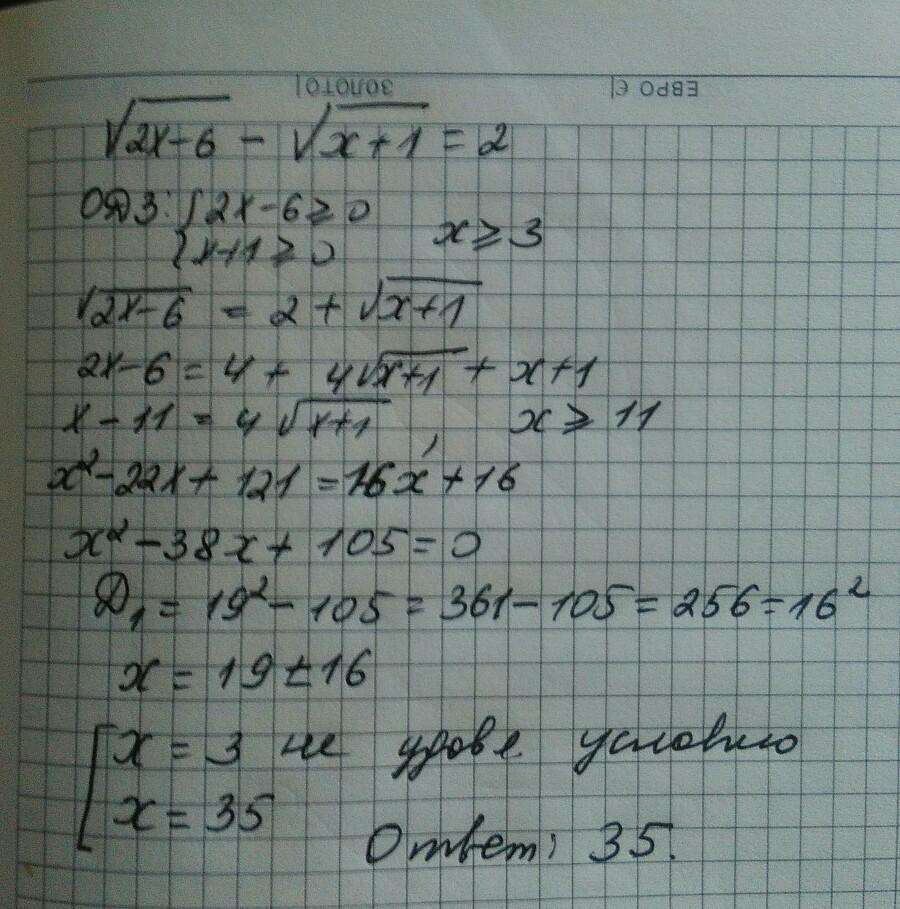 ЕВРО €| ЗОЛОТО|
√2x-6 - √x+1 = 2
ОДЗ: { 2x-6 ≥ 0
x+1 ≥ 0 x ≥ 3
√2x-6 = 2 + √x+1
2x-6 = 4 + 4√x+1 + x+1
x-11 = 4√x+1, x ≥ 11
x²-22x+121 = 16x+16
x²-38x+105=0
Д₁ = 19²-105 = 361-105 = 256 = 16²
x = 19 ± 16
[ x = 3 не удовл условию
x = 35
Ответ: 35.